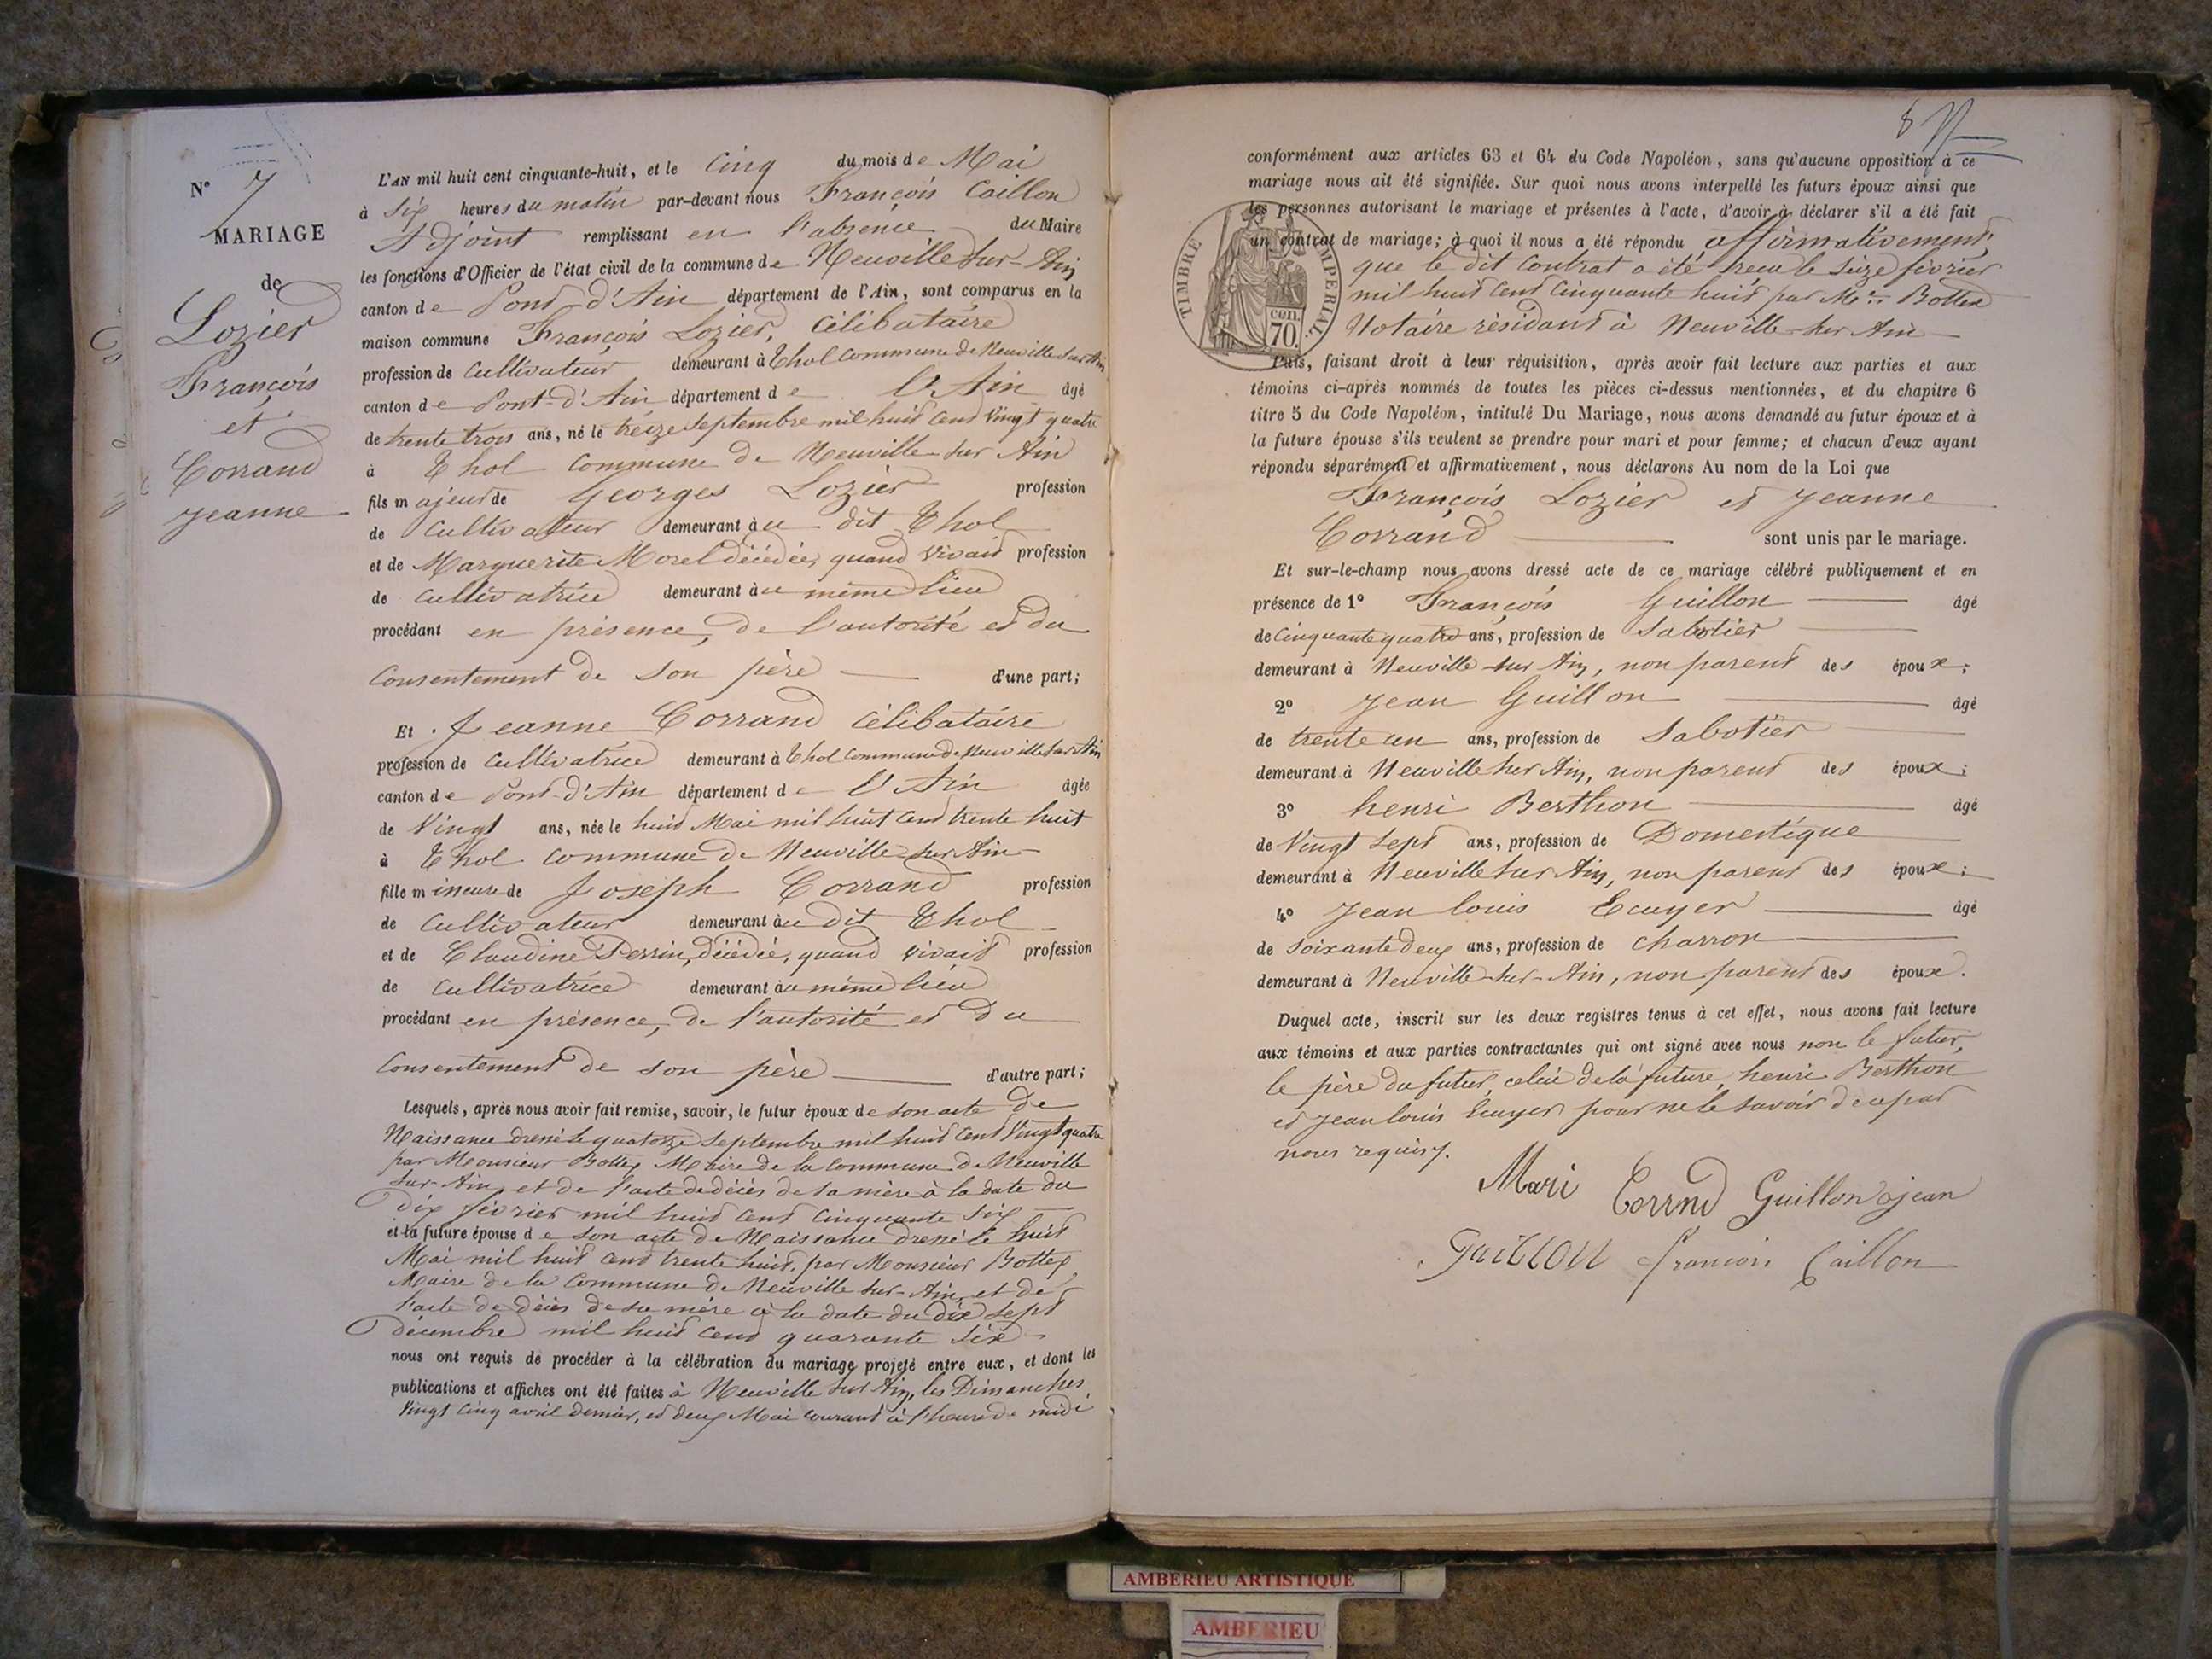 N° 7
MARIAGE
de
Lozier
François
et
Corrand
Jeanne
L'AN mil huit cent cinquante-huit, et le Cinq du mois de Mai
à Six heures du matin par-devant nous François Caillon
Adjoint remplissant en l'absence du Maire
les fonctions d'Officier de l'état civil de la commune de Neuville sur-Ain
canton de Pont-d'Ain département de l'Ain, sont comparus en la
maison commune François Lozier, Célibataire
profession de Cultivateur demeurant à Thol Commune de Neuville sur Ain
canton de Pont-d'Ain département de l'Ain âgé
de trente trois ans, né le treize Septembre mil huit cent Vingt quatre
à Thol Commune de Neuville-sur Ain
fils majeur de Georges Lozier profession
de Cultivateur demeurant au dit Thol
et de Marguerite Morel décédée, quand Vivait profession
de Cultivatrice demeurant au même lieu
procédant en présence, de l'autorité et du
Consentement de son père d'une part;
Et Jeanne Corrand Célibataire
profession de Cultivatrice demeurant à Thol Commune de Neuville sur Ain
canton de Pont-d'Ain département de l'Ain âgée
de Vingt ans, née le huit Mai mil huit cent trente huit
à Thol Commune de Neuville-sur Ain
fille mineure de Joseph Corrand profession
de Cultivateur demeurant au dit Thol
et de Claudine Perrin, décédée, quand vivait profession
de Cultivatrice demeurant au même lieu
procédant en présence, de l'autorité et du
Consentement de son père d'autre part;
Lesquels, après nous avoir fait remise, savoir, le futur époux de son acte de
Naissance dressé le quatorze Septembre mil huit cent Vingt quatre
par Monsieur Bottex Maire de la Commune de Neuville
sur-Ain, et de l'acte de décès de sa mère à la date du
dix février mil huit cent cinquante six
et la future épouse de son acte de Naissance dressé le huit
Mai mil huit cent trente huit, par Monsieur Bottex
Maire de la Commune de Neuville sur-Ain, et de
l'acte de décès de sa mère à la date du dix sept
décembre mil huit cent quarante six
nous ont requis de procéder à la célébration du mariage projeté entre eux, et dont les
publications et affiches ont été faites à Neuville sur Ain, les Dimanches
Vingt Cinq avril dernier, et deux Mai courant à l'heure de midi
8
conformément aux articles 63 et 64 du Code Napoléon, sans qu'aucune opposition à ce
mariage nous ait été signifiée. Sur quoi nous avons interpellé les futurs époux ainsi que
les personnes autorisant le mariage et présentes à l'acte, d'avoir à déclarer s'il a été fait
un contrat de mariage; à quoi il nous a été répondu affirmativement,
que le dit Contrat a été reçu le Seize février
mil huit Cent Cinquante huit par Me Bottex
Notaire résidant à Neuville-sur Ain
TIMBRE IMPERIAL
cen.
70.
Puis, faisant droit à leur réquisition, après avoir fait lecture aux parties et aux
témoins ci-après nommés de toutes les pièces ci-dessus mentionnées, et du chapitre 6
titre 5 du Code Napoléon, intitulé Du Mariage, nous avons demandé au futur époux et à
la future épouse s'ils veulent se prendre pour mari et pour femme; et chacun d'eux ayant
répondu séparément et affirmativement, nous déclarons Au nom de la Loi que
François Lozier et Jeanne
Corrand sont unis par le mariage.
Et sur-le-champ nous avons dressé acte de ce mariage célébré publiquement et en
présence de 1° François Guillon âgé
de Cinquante quatre ans, profession de Sabotier
demeurant à Neuville-sur Ain, non parent des époux;
2° Jean Guillon âgé
de trente un ans, profession de Sabotier
demeurant à Neuville sur Ain, non parent des époux;
3° henri Berthon âgé
de Vingt Sept ans, profession de Domestique
demeurant à Neuville sur Ain, non parent des époux;
4° Jean louis Ecuyer âgé
de Soixante deux ans, profession de Charron
demeurant à Neuville-sur-Ain, non parent des époux.
Duquel acte, inscrit sur les deux registres tenus à cet effet, nous avons fait lecture
aux témoins et aux parties contractantes qui ont signé avec nous non le futur,
le père du futur, celui de la future, henri Berthon
et Jean louis Ecuyer pour ne le savoir de ce par
nous requis.
Mari Corrnd Guillon jean
Guillon francois Caillon
AMBERIEU ARTISTIQUE
AMBERIEU